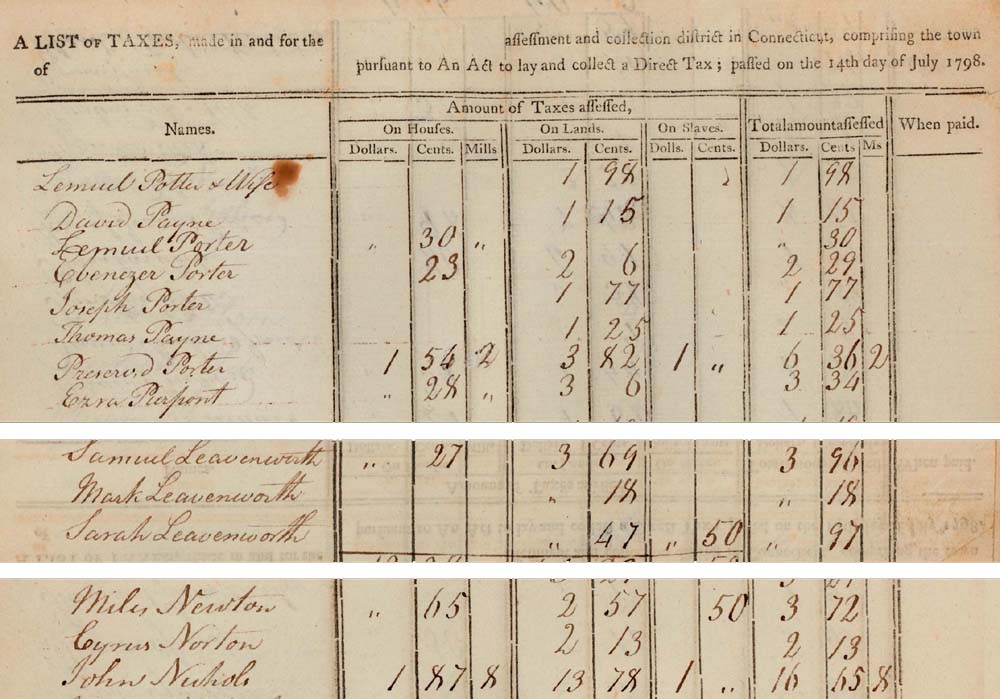 A LIST OF TAXES, made in and for the assessment and collection district in Connecticut, comprising the town
of pursuant to An Act to lay and collect a Direct Tax; passed on the 14th day of July 1798.
Amount of Taxes assessed,
Names. On Houses. On Lands. On Slaves. Total amount assessed When paid.
Dollars. Cents. Mills Dollars. Cents. Dolls. Cents. Dollars. Cents Ms
Lemuel Potter & Wife 1 98 1 98
David Payne 1 15 1 15
Lemuel Porter " 30 " " 30
Ebenezer Porter 23 2 6 2 29
Joseph Porter 1 77 1 77
Thomas Payne 1 25 1 25
Preserv.d Porter 1 54 2 3 82 1 " 6 36 2
Ezra Pierpont " 28 " 3 6 3 34
Samuel Leavenworth " 27 3 69 3 96
Mark Leavenworth " 18 " 18
Sarah Leavenworth " 47 " 50 " 97
Miles Newton " 65 2 57 50 3 72
Cyrus Norton 2 13 2 13
John Nichols 1 87 8 13 78 1 " 16 65 8